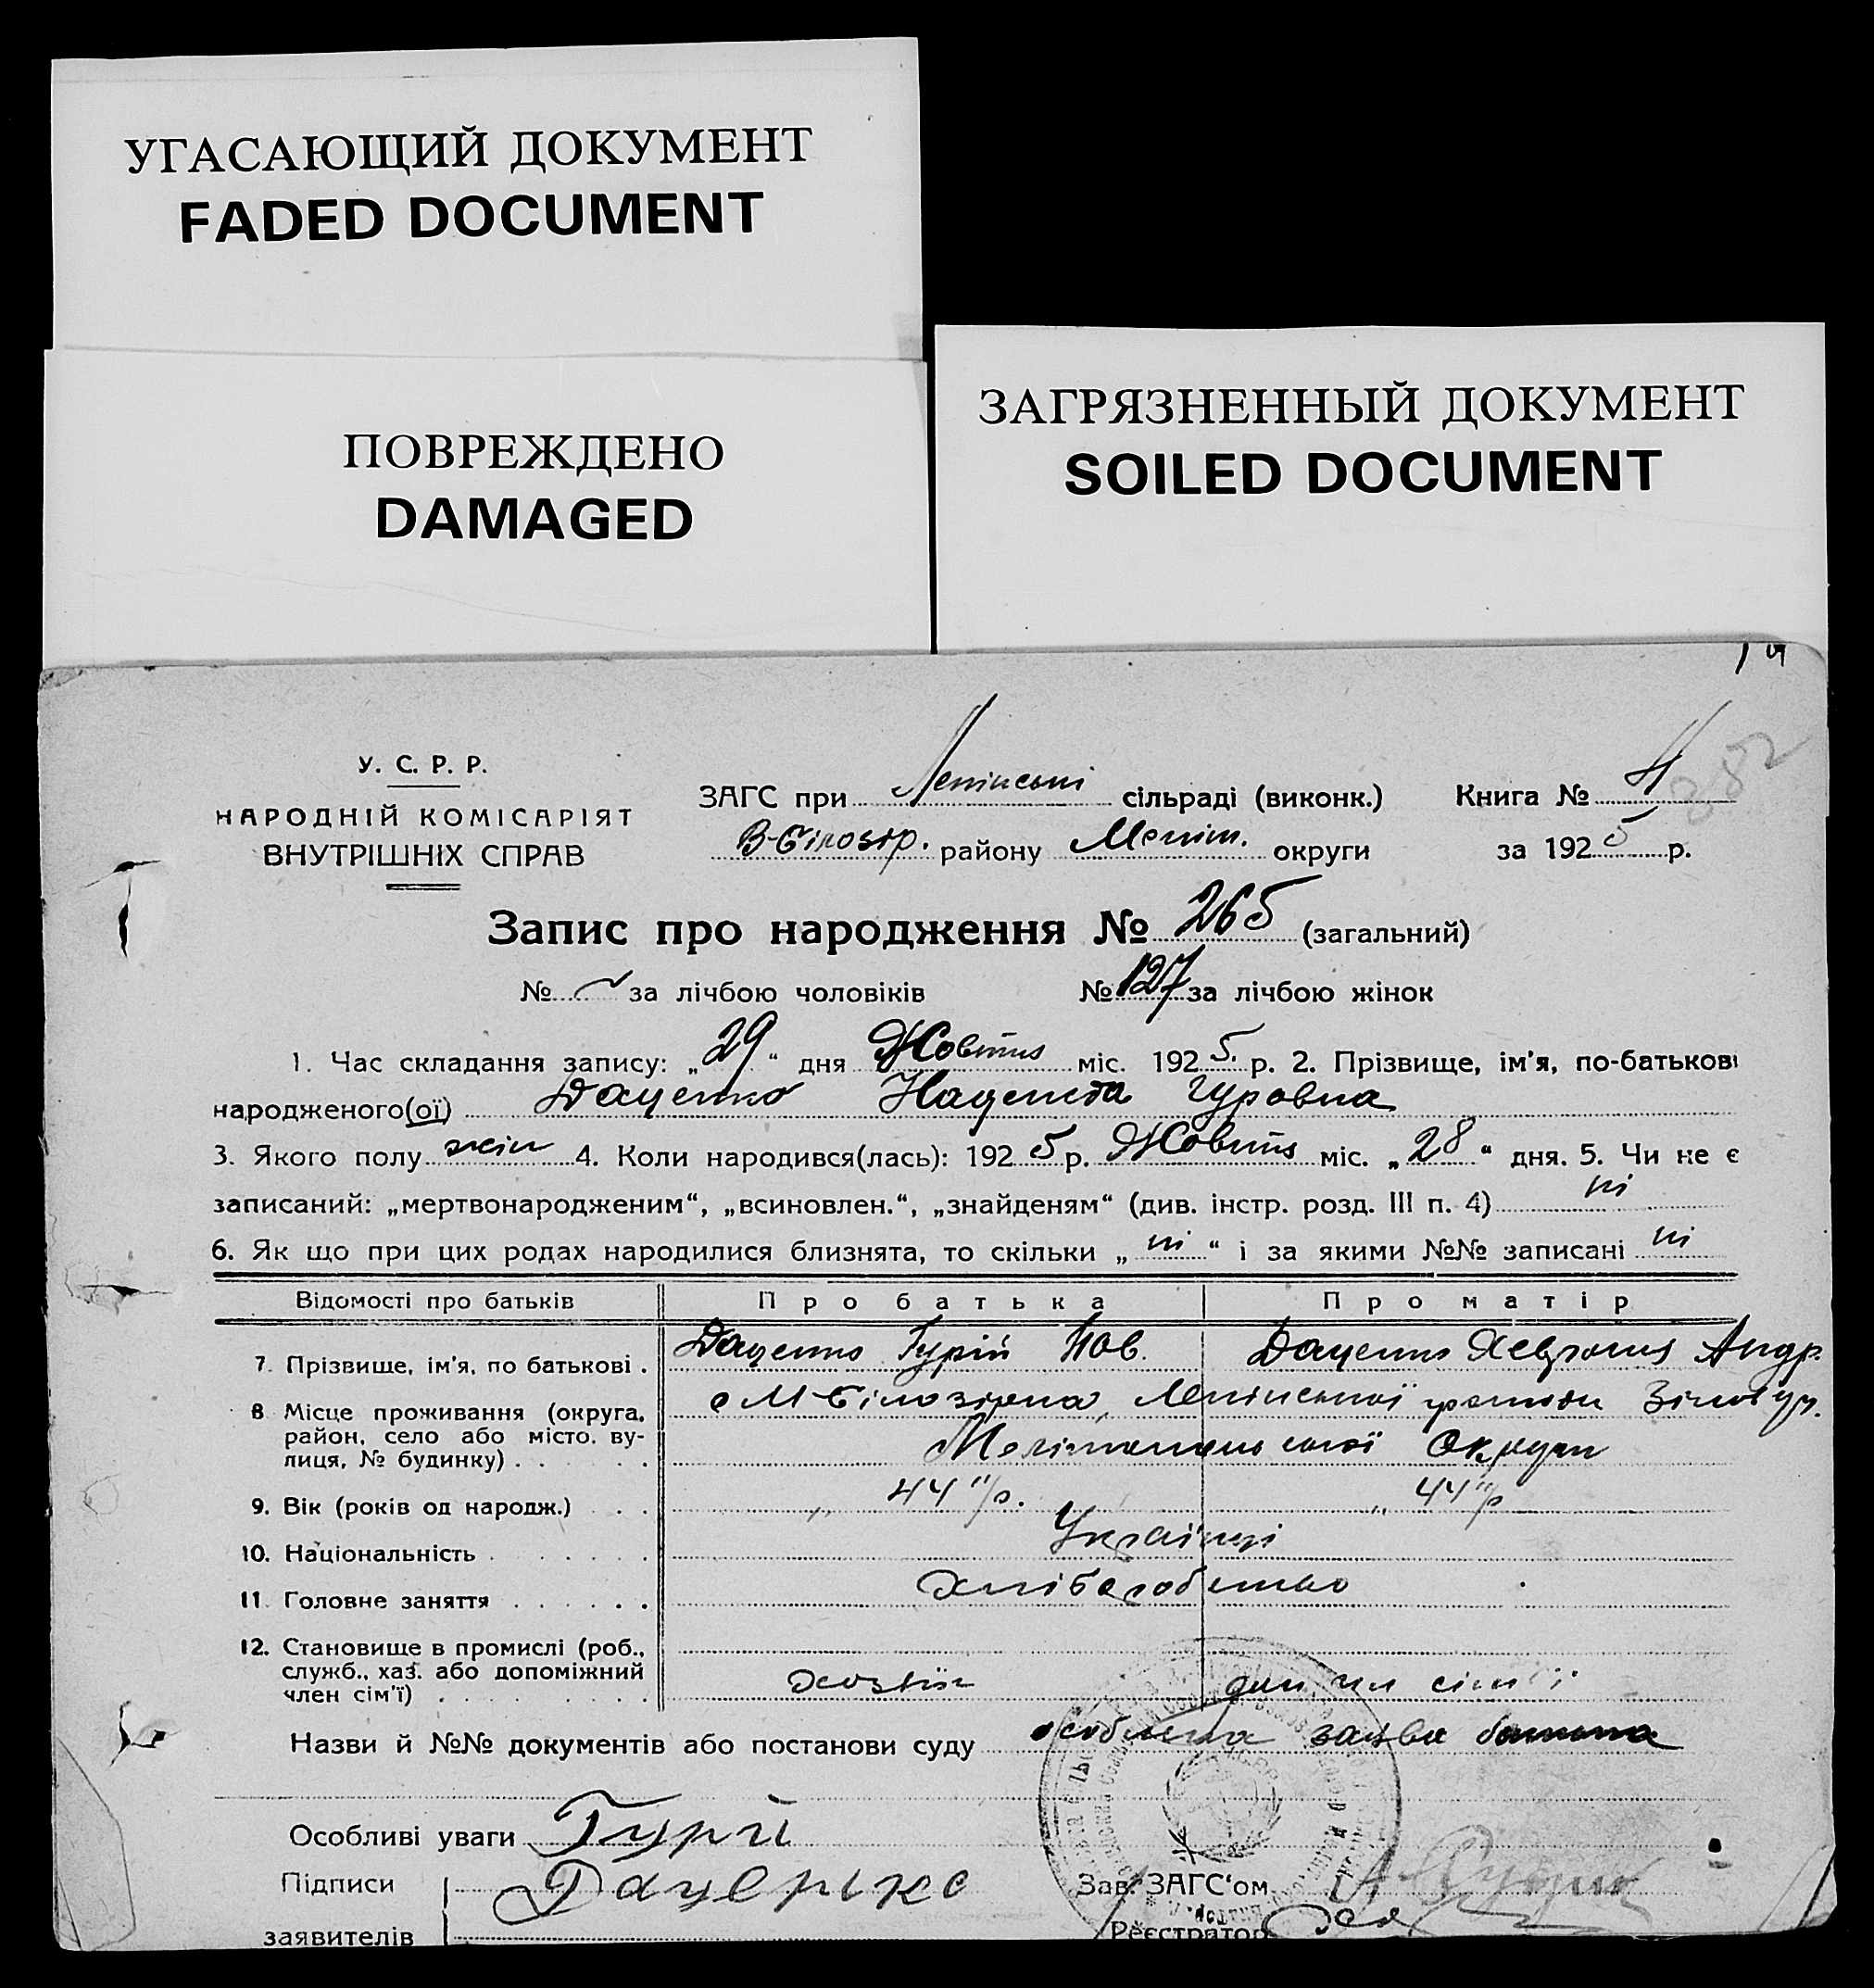 УГАСАЮЩИЙ ДОКУМЕНТ
FADED DOCUMENT
ПОВРЕЖДЕНО
DAMAGED
ЗАГРЯЗНЕННЫЙ ДОКУМЕНТ
SOILED DOCUMENT
У. С. Р. Р.
НАРОДНІЙ КОМІСАРІЯТ
ВНУТРІШНІХ СПРАВ
ЗАГС при Ленінській сільраді (виконк.)
В-Білозір. району Меліт. округи
Книга №
за 1925 р.
Запис про народження № 265 (загальний)
№ за лічбою чоловіків № 127 за лічбою жінок
1. Час складання запису: „29“ дня Жовтня міс. 1925. р. 2. Прізвище, ім'я, по-батькові
народженого(ої) Даценко Надежда Гуровна
3. Якого полу жін 4. Коли народився(лась): 1925 р. Жовтня міс. „28“ дня. 5. Чи не є
записаний: „мертвонародженим“, „всиновлен.“, „знайденям“ (див. інстр. розд. III п. 4) ні
6. Як що при цих родах народилися близнята, то скільки „ні“ і за якими №№ записані ні
Відомості про батьків Про батька Про матір
7. Прізвище, ім'я, по батькові . Даценко Гурій Пав. Даценко Андр.
8 Місце проживання (округа, район, село або місто, вулиця, № будинку) . . . с М-Білозірка, Ленінської громади
Мелітопольської Округи
9. Вік (років од народж.) . . . 44 44
10. Національність . . . . . . Українці
11. Головне заняття . . . . . . Хліборобство
12. Становище в промислі (роб., служб., хаз. або допоміжний член сім'ї) . . . . . . Хозяїн доп чл сім'ї
Назви й №№ документів або постанови суду особиста заява батька
Особливі уваги Гурй
Підписи Даценко
заявителів
Зав. ЗАГС'ом
Реєстратор